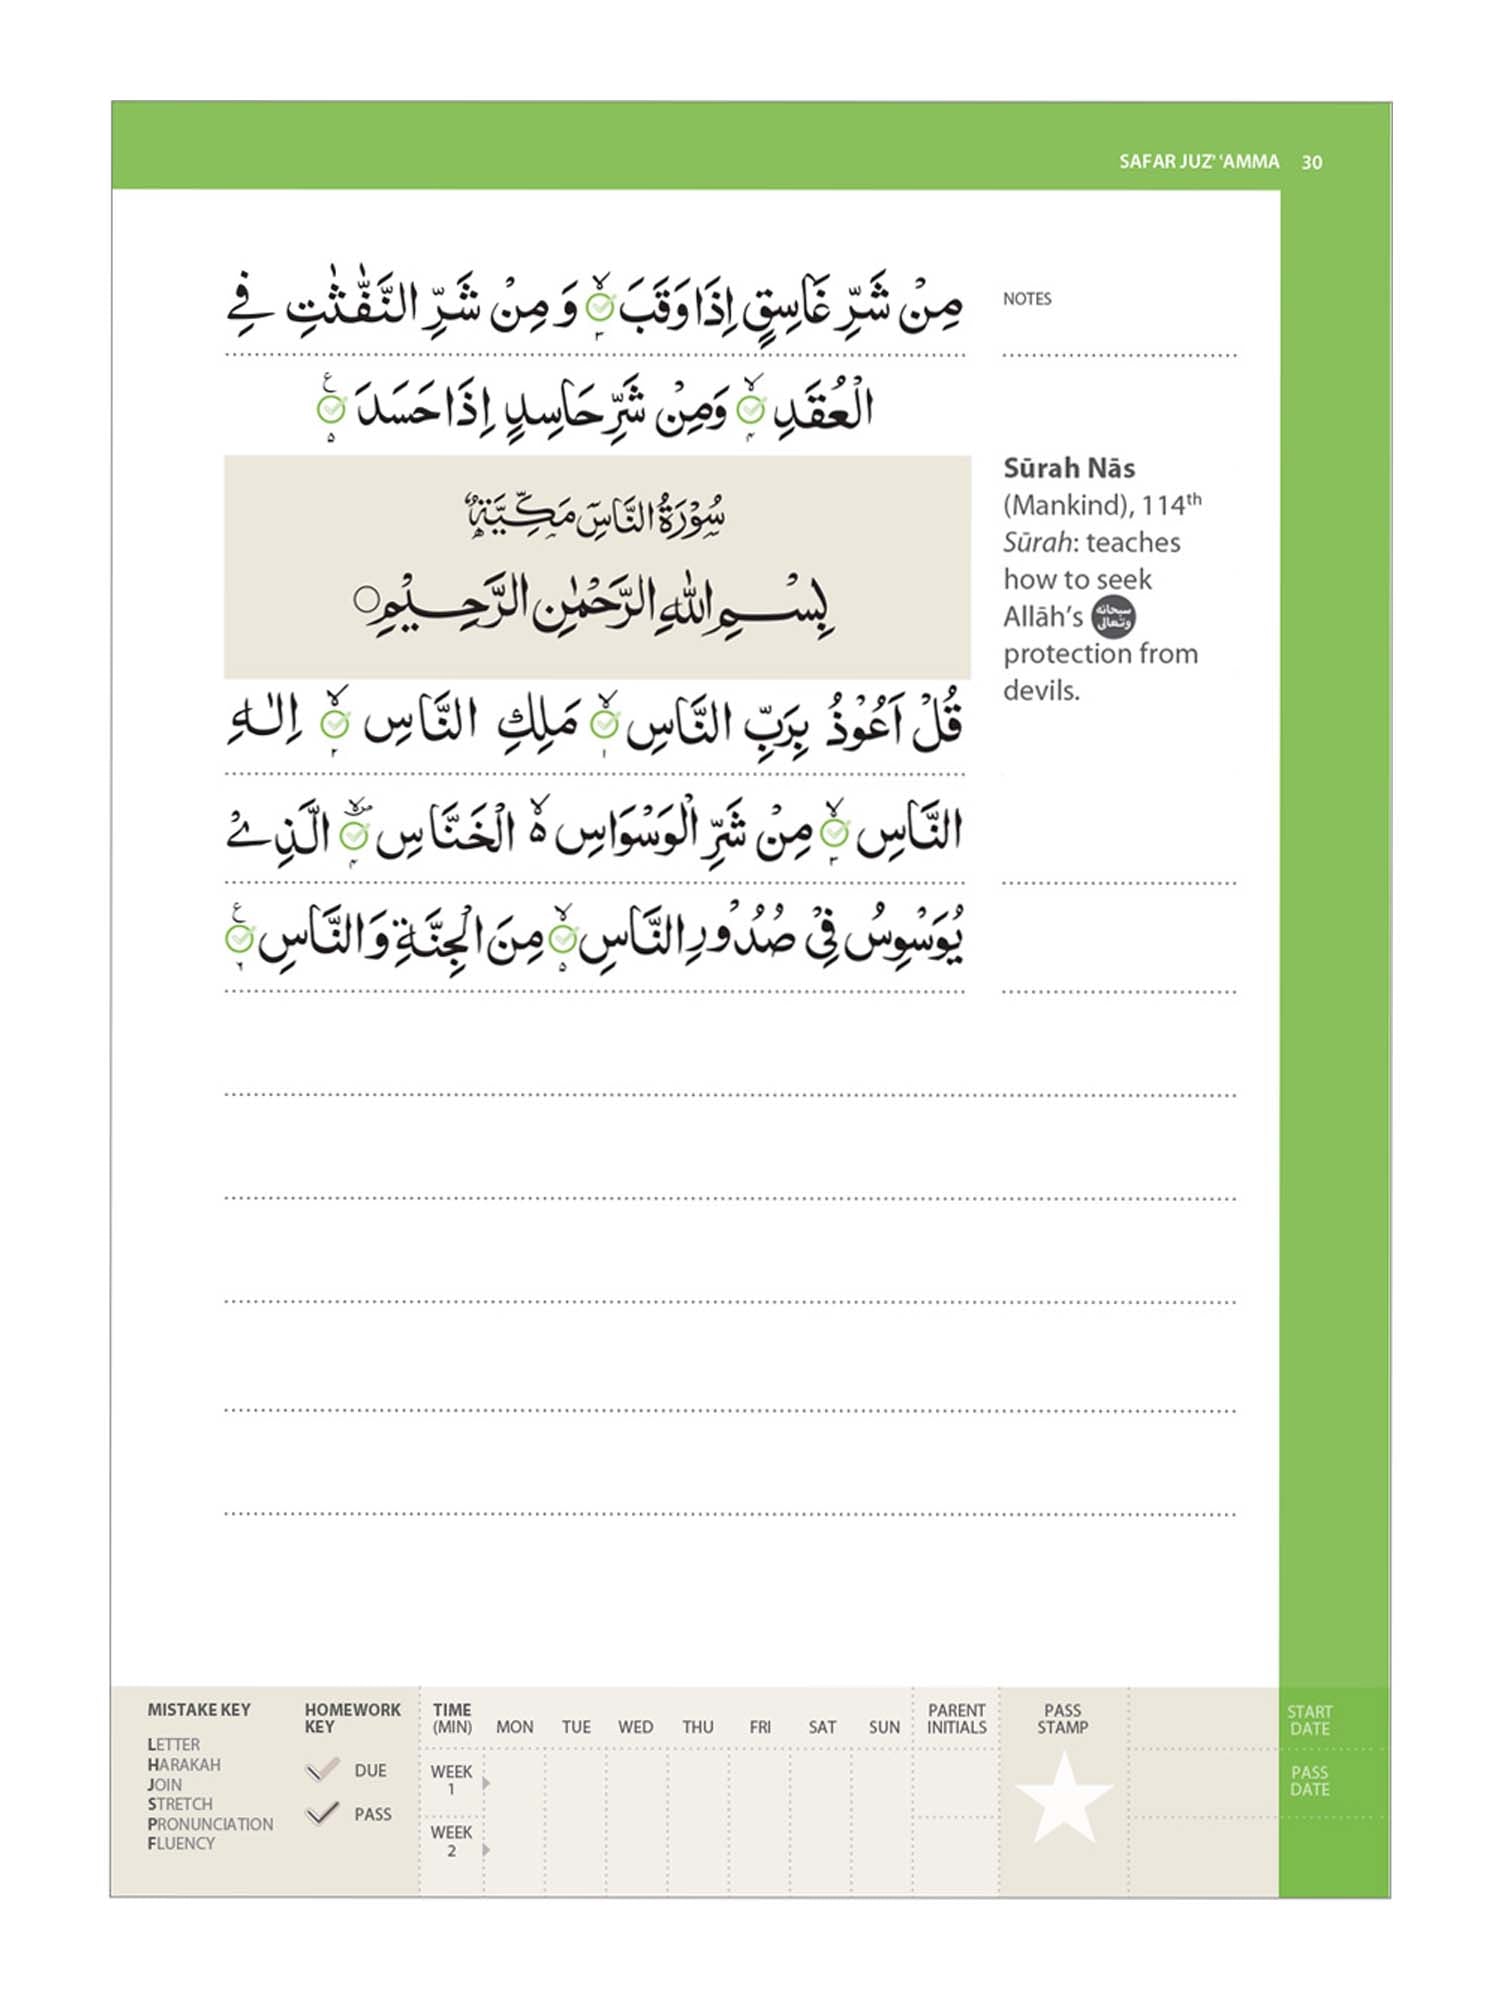 SAFAR JUZ' 'AMMA 30
مِنْ شَرِّ غَاسِقٍ اِذَا وَقَبَ ۙ۳ وَ مِنْ شَرِّ النَّفّٰثٰتِ فِی
NOTES
الْعُقَدِ ۙ۴ وَمِنْ شَرِّ حَاسِدٍ اِذَا حَسَدَ ۵ ع
سُوْرَةُ النَّاسِ مَكِّيَّةٌ
بِسْمِ اللّٰهِ الرَّحْمٰنِ الرَّحِيْمِ
Sūrah Nās
(Mankind), 114th
Sūrah: teaches
how to seek
Allāh's سبحانه وتعالى
protection from
devils.
قُلْ اَعُوْذُ بِرَبِّ النَّاسِ ۙ۱ مَلِكِ النَّاسِ ۙ۲ اِلٰهِ
النَّاسِ ۙ۳ مِنْ شَرِّ الْوَسْوَاسِ ۙ۬ الْخَنَّاسِ ۴۪ۙ الَّذِیْ
يُوَسْوِسُ فِیْ صُدُوْرِ النَّاسِ ۙ۵ مِنَ الْجِنَّةِ وَ النَّاسِ ۶ ع
MISTAKE KEY
LETTER
HARAKAH
JOIN
STRETCH
PRONUNCIATION
FLUENCY
HOMEWORK
KEY
DUE
PASS
TIME
(MIN) MON TUE WED THU FRI SAT SUN
WEEK
1
WEEK
2
PARENT
INITIALS
PASS
STAMP
START
DATE
PASS
DATE